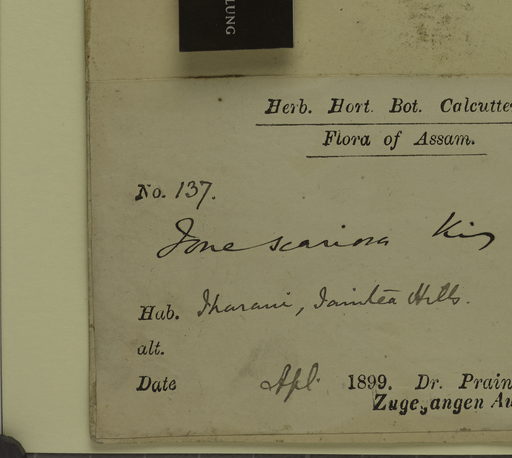 LUNG
Herb. Hort. Bot. Calcutte
Flora of Assam.
No. 137.
Ione scariosa King
Hab. Tharani, Jaintea Hills.
alt.
Date Apl. 1899. Dr. Prain
Zugegangen Au